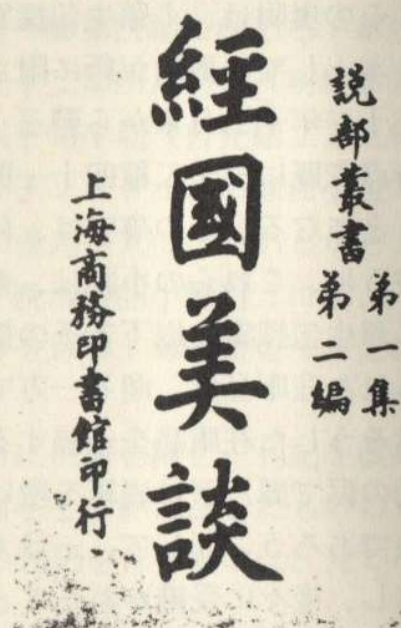 説部叢書
第一集
第二編
經國美談
上海商務印書館印行